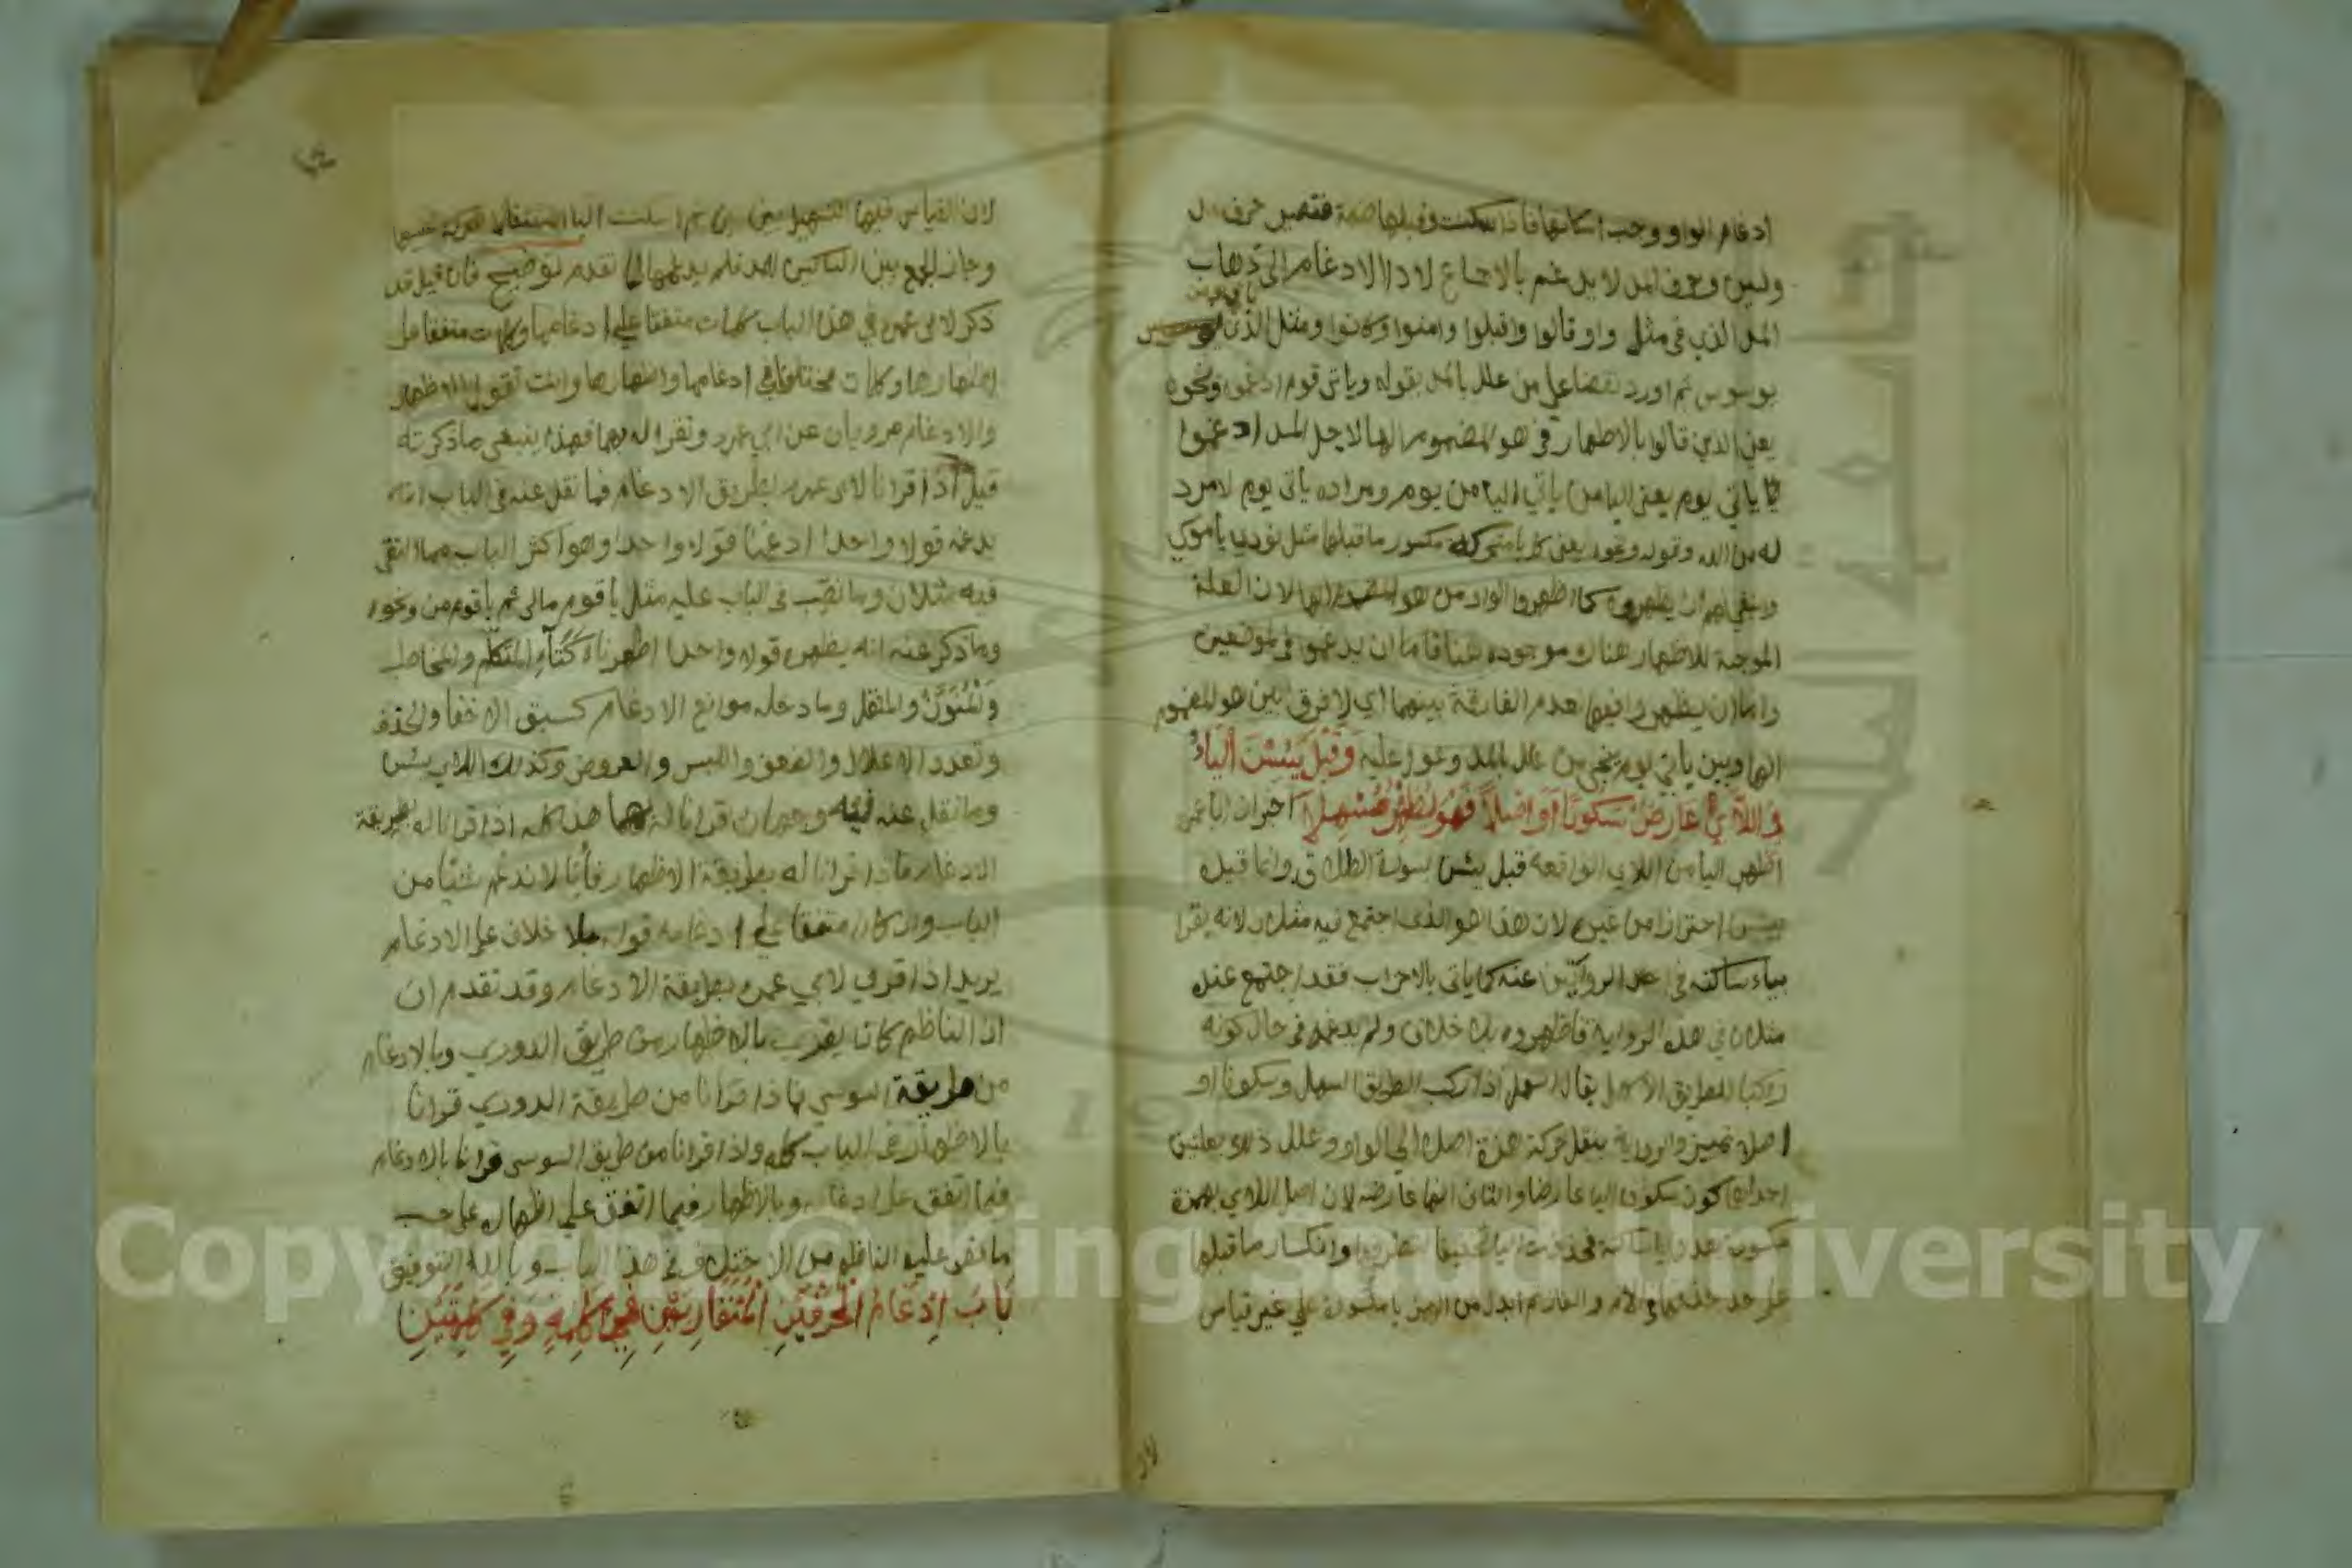 ادغام الواو ووجب اسكانها فاذا سكنت وقبلها ضمة فتصير حرف مد
ولين وحرف المد لا يدغم بالاجماع لاداء الادغام الى ذهاب
المد الذي في مثل واو قالوا واقبلوا وامنوا وكانوا ومثل الذي
يوسوس ثم اورد نقضا علي من علل بالمد بقوله وياتي قوم ادغموا ونحوه
يعني الذين قالوا بالاظهار في هو المضموم الها لاجل المد ادغموا
يأتي يوم يعني اليا من يأتي اليا من يوم ومراده يأتي يوم لا مرد
له من الله وقوله ونحوه يعني كل يا متحركة مكسور ما قبلها مثل نودي يا موسي
وينبغي لهم ان يظهروه كما اظهروا الواو من هو المضموم الها لان العلة
الموجبة للاظهار هناك موجوده هنا فاما ان يدغموا في الموضعين
واما ان يظهروا فيهما لعدم الفارقة بينهما اي لا فرق بين هو المضموم
الها وبين يأتي يوم ينجي من علل بالمد وعول عليه وَقَبْلَ يَئِسْنَ الْيَاءُ
فِي اللَّائِي عَارِضٌ سُكُونًا أَوَ اصْلًا فَهْوَ يُظْهِرُ مُسْهِلَا اخبر ان ابا عمرو
اظهر اليا من اللاي الواقعه قبل يئسن بسورة الطلاق وانما قيده
بيئسن احترازا من غيره لان هذا هو الذي اجتمع فيه مثلان لانه يقرا
بياء ساكنه في احد الروايتين عنه كما ياتي بالاحزاب فقد اجتمع عنده
مثلان في هذه الروايه فاظهره بلا خلاف ولم يدغمه في حال كونه
راكبا للطريق الاسهل يقال اسهل اذا ركب الطريق السهل وسكونا او
اصلا تمييز والرواية بنقل حركة همزة اصلا الي الواو وعلل ذلك بعلتين
احداهما كون سكون اليا عارضا والثاني انها عارضه لان اصل اللاي بهمزة
مكسورة بعدها يا ساكنة فحذفت اليا تخفيفا لتطرفها وانكسار ما قبلها
ثم ابدل من الهمزة يا مكسورة علي غير قياس
لان القياس فيها التسهيل بين بين ثم اسكنت اليا استثقالا للحركة عليها
وجاز الجمع بين الساكنين للمد فلم يدغمها لما تقدم توضيح فان قيل قد
ذكر لابي عمرو في هذا الباب كلمات متفقا علي ادغامها وكلمات متفقا علي
اظهارها وكلمات مختلفا في ادغامها واظهارها وانت تقول الاظهار
والادغام مرويان عن ابي عمرو وتقرا له بهما فهذا ينبغي ما ذكرته
قيل اذا قرانا لابي عمرو بطريق الادغام فما نقل عنه في الباب انه
يدغمه قولا واحدا ادغمنا قولا واحدا وهو اكثر الباب مما التقى
فيه مثلان وما نصب في الباب عليه مثل يا قوم مالي ثم يا قوم من ونحوه
وما ذكر عنه انه يظهره قولا واحدا اظهرناه كتاء المتكلم والمخاطب
والمنون والمثقل وما دخله موانع الادغام كسبق الاخفا والحذف
وتعدد الاعلال والضعف واللبس والعروض وكذلك اللاي يئسن
وما نقل عنه فيه وجهان قرانا له بهما هذا كله اذا قرانا له بطريقة
الادغام فاذا قرانا له بطريقة الاظهار فاننا لا ندغم شيئا من
الباب وان كان متفقا علي ادغامه قوله بلا خلاف علي الادغام
يريد اذا قري لابي عمرو بطريقة الادغام وقد تقدم ان
ان الناظم كان يقري بالاظهار من طريق الدوري وبالادغام
من طريقة السوسي فاذا قرانا من طريقة الدوري قرانا
بالاظهار في الباب كله واذا قرانا من طريق السوسي قرانا بالادغام
فيما اتفق علي ادغامه وبالاظهار فيما اتفق علي اظهاره علي حسب
ما نص عليه الناظم من الاختلاف في هذا الباب وبالله التوفيق
بَابُ إِدْغَامِ الْحَرْفَيْنِ الْمُتَقَارِبَيْنِ فِي كَلِمَةٍ وَفِي كَلِمَتَيْنِ
Copyright © King Saud University
1957